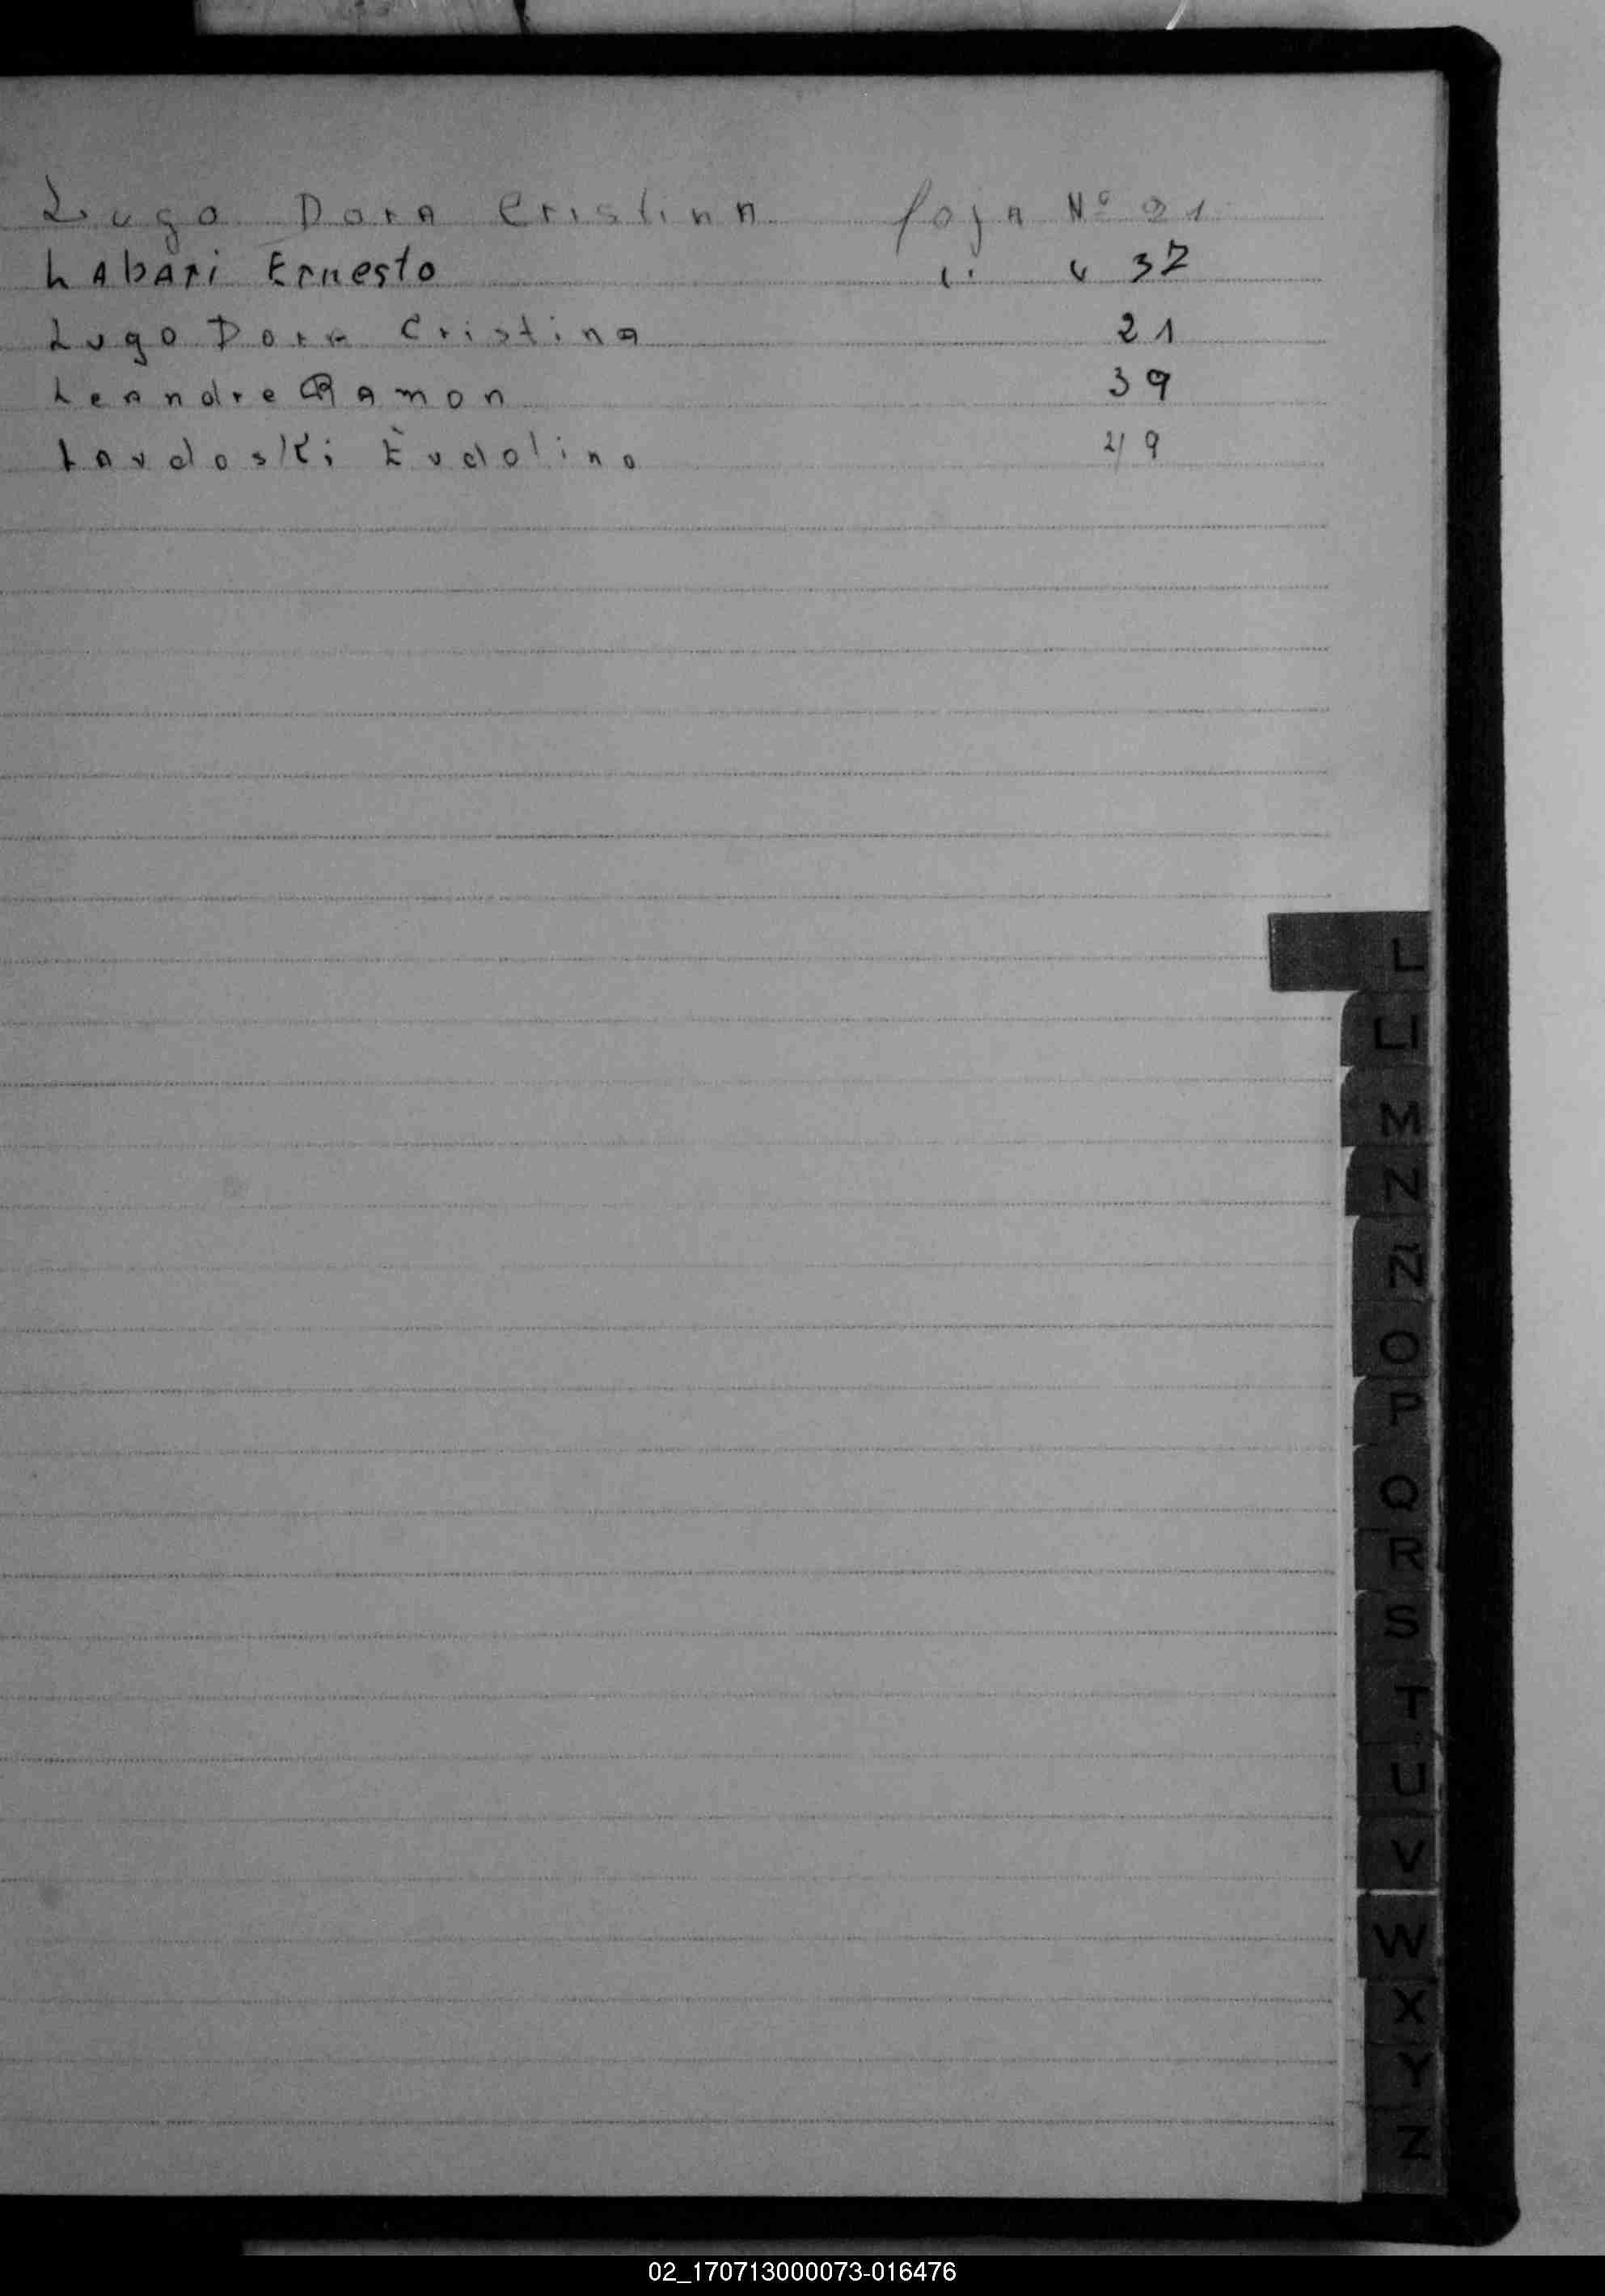 Lugo Dora Cristina foja Nº 21
Labari Ernesto " " 37
Lugo Dora Cristina 21
Leandre Ramon 39
Lavdoski Evdolino 49
L
Ll
M
N
Ñ
O
P
Q
R
S
T
U
V
W
X
Y
Z
02_170713000073-016476